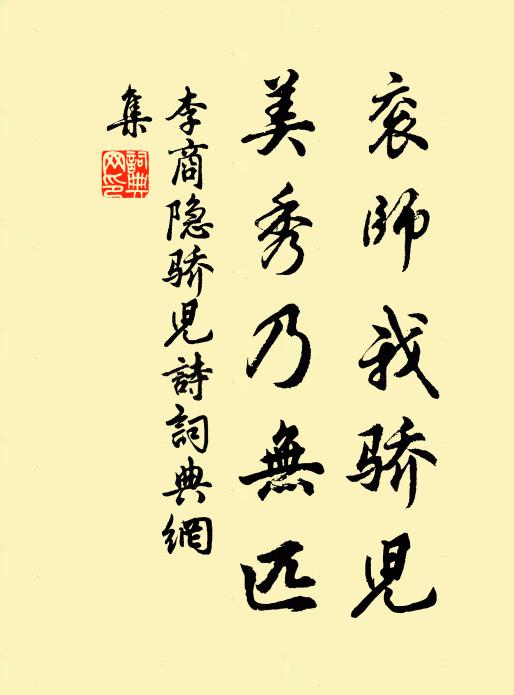 衮師我骄児
美秀乃無匹
李商隐骄児詩詞典網
集
詞典
网印